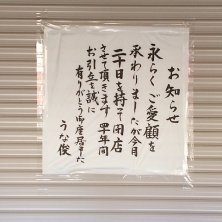 お知らせ
永らくご愛顧を
承わりましたが今月
二十日を持って閉店
させて頂きます 学年間
お引立を誠に
有りがとう御座居ました
うな俊